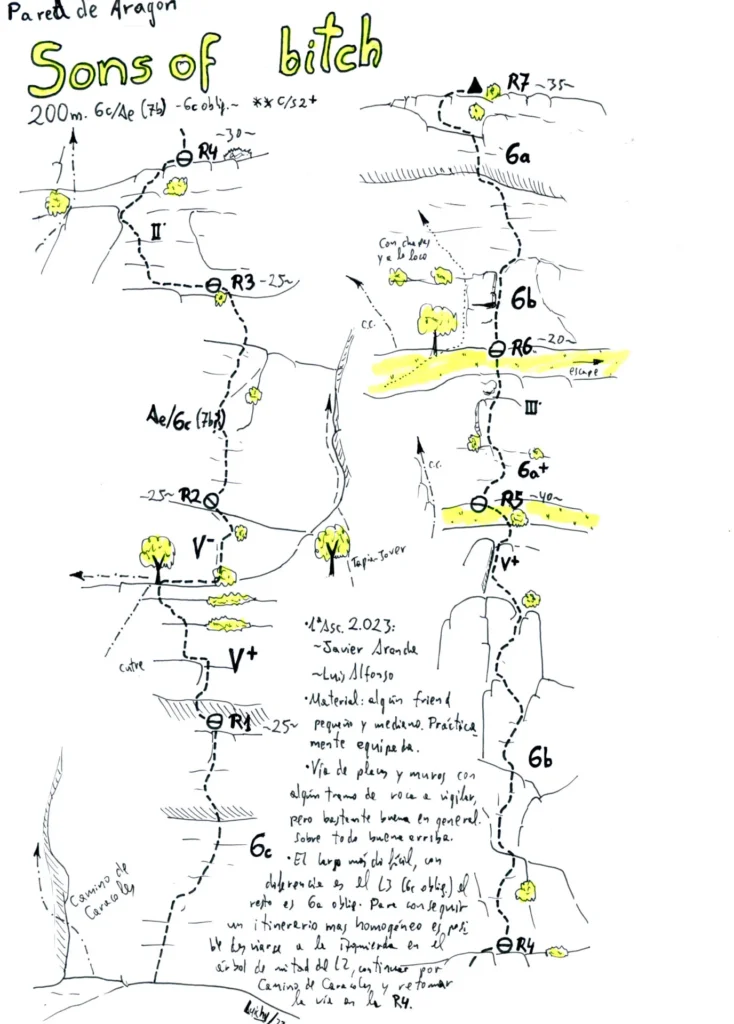 Pared de Aragón
Sons of bitch
200m. 6c/Ae (7b) -6c oblig.~ ** c/s2+
~30~
R4
II·
R3 ~25~
c.c.
Ae/6c (7b?)
~25~ R2
V-
Tapia-Jover
cutre
V+
R1 ~25~
6c
Camino de
Caracoles
R7 ~35~
6a
Con chapas
y a lo loco
6b
R6 ~20~
escape
III·
6a+
c.c.
R5 ~40~
V+
6b
R4
·1ª Asc. 2.023:
~Javier
~Luis Alfonso
·Material: algún friend
pequeño y mediano. Práctica
mente equipada.
·Vía de placas y muros con
algún tramo de roca a vigilar,
pero bastante buena en general.
Sobre todo buena arriba.
·El largo más difícil, con
diferencia es el L3 (6c oblig.) el
resto es 6a oblig. Para conseguir
un itinerario mas homogéneo es posi
ble desviarse a la izquierda en el
árbol de mitad del L2, continuar por
Camino de Caracoles y retomar
la vía en la R4.